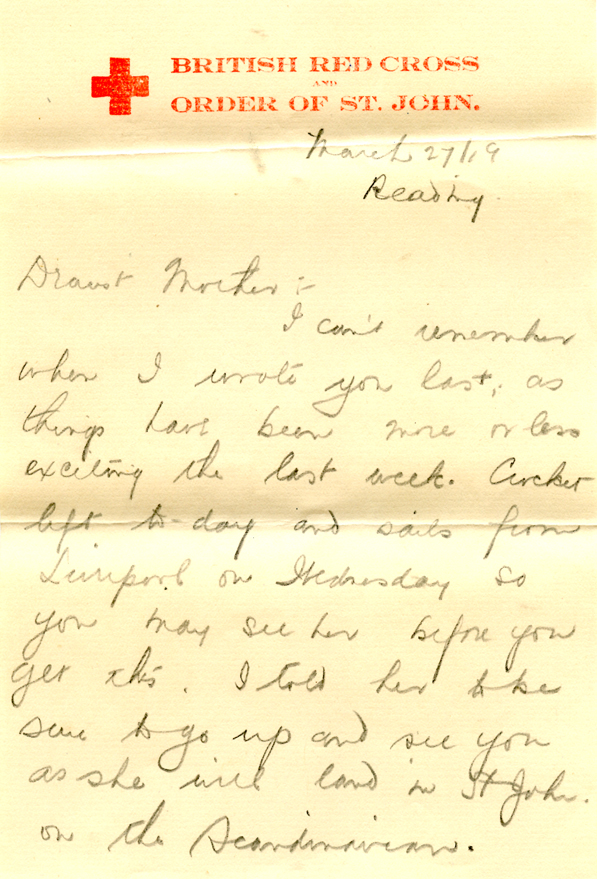 BRITISH RED CROSS
AND
ORDER OF ST. JOHN.
March 27/19
Reading
Dearest Mother :-
I can't remember
when I wrote you last, as
things have been more or less
exciting the last week.
left to-day and sails from
Liverpool on Wednesday so
you may see her before you
get this. I told her to be
sure to go up and see you
as she will land in St John.
on the Scandinavian.